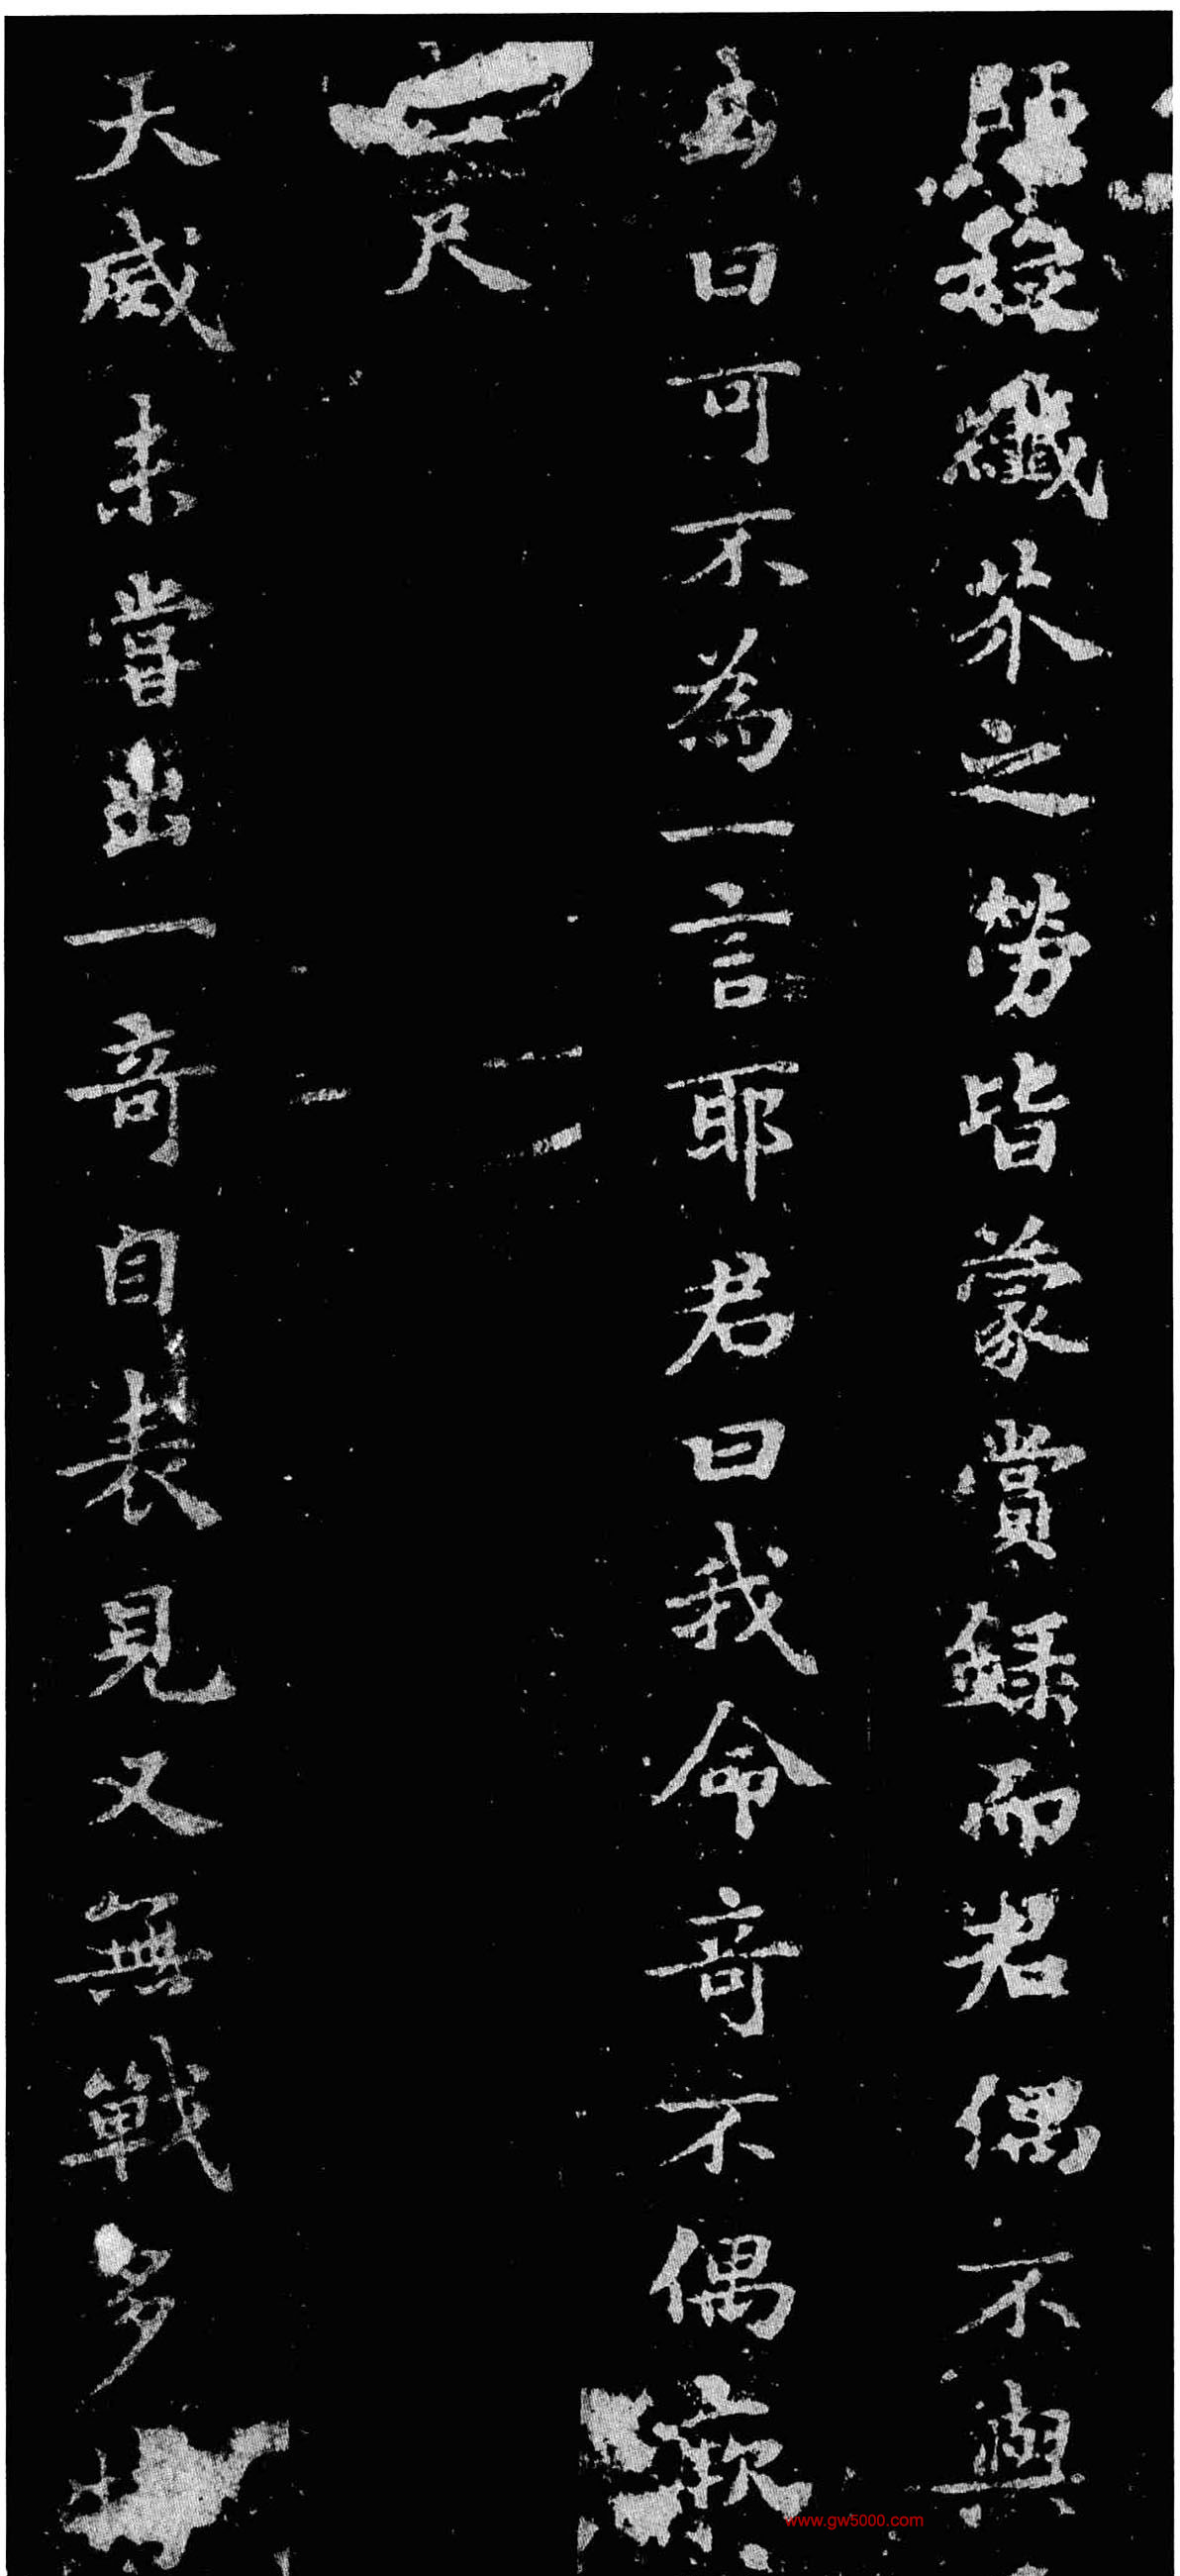 纖芥之勞皆蒙賞錄而君偶不與
曰可不為一言耶君曰我命奇不偶
尺
大威未嘗出一奇自表見又無戰多
www.gw5000.com